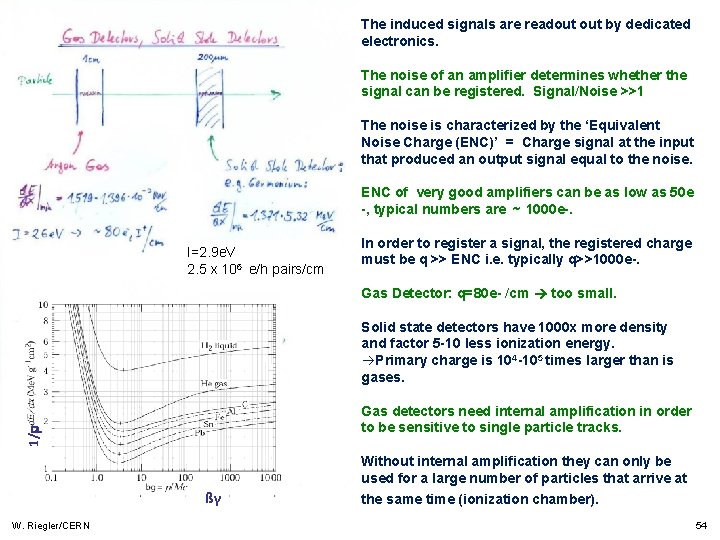 Gas Detectors, Solid State Detectors
1cm
200µm
Particle
Argon Gas
Solid State Detector:
e.g. Germanium:
dE/dx|min = 1.519·1.396·10⁻³ MeV/cm
dE/dx| = 1.371·5.32 MeV/cm
I = 26eV → ~ 80 e⁻, I⁺/cm
I=2.9e.V
2.5 x 10⁶ e/h pairs/cm
The induced signals are readout out by dedicated
electronics.
The noise of an amplifier determines whether the
signal can be registered. Signal/Noise >>1
The noise is characterized by the ‘Equivalent
Noise Charge (ENC)’ = Charge signal at the input
that produced an output signal equal to the noise.
ENC of very good amplifiers can be as low as 50e
-, typical numbers are ~ 1000e-.
In order to register a signal, the registered charge
must be q >> ENC i.e. typically q>>1000e-.
Gas Detector: q=80e- /cm → too small.
Solid state detectors have 1000x more density
and factor 5-10 less ionization energy.
→Primary charge is 10⁴-10⁵ times larger than is
gases.
Gas detectors need internal amplification in order
to be sensitive to single particle tracks.
Without internal amplification they can only be
used for a large number of particles that arrive at
the same time (ionization chamber).
10
8
6
5
4
3
2
1
1/ρ
dE/dx (MeV g⁻¹cm²)
H₂ liquid
He gas
C
Al
Fe
Sn
Pb
0.1 1.0 10 100 1000 10 000
bg = p/Mc
ßγ
W. Riegler/CERN
54